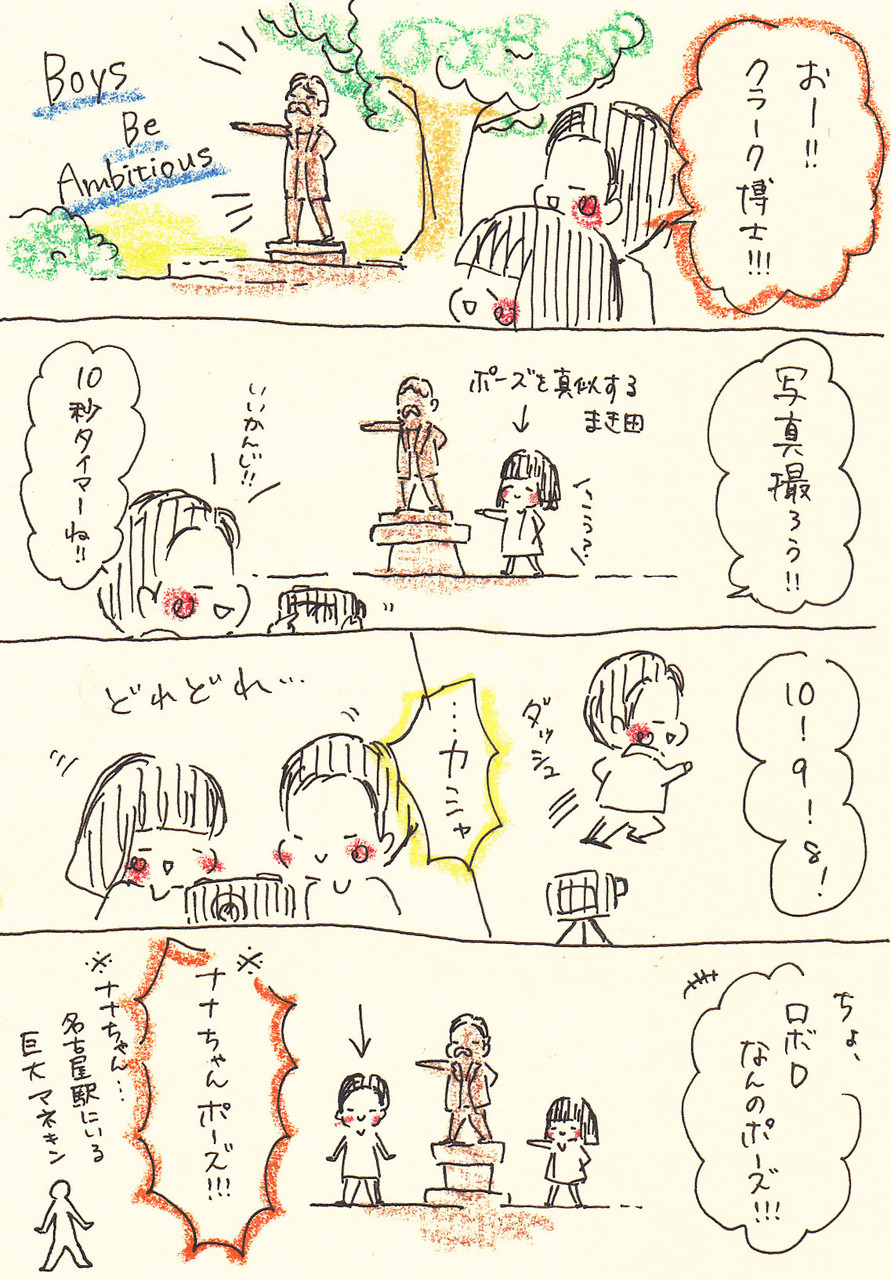 おー!!
クラーク博士!!!
Boys
Be
Ambitious
写真撮ろう!!
ポーズを真似する
まき田
いいかんじ!!
10秒タイマーね!!
10!9!8!
ダッシュ
…カシャ
どれどれ…
ちょ、
ロボロ
なんのポーズ!!!
※
ナナちゃんポーズ!!!
※ナナちゃん…
名古屋駅にいる
巨大マネキン